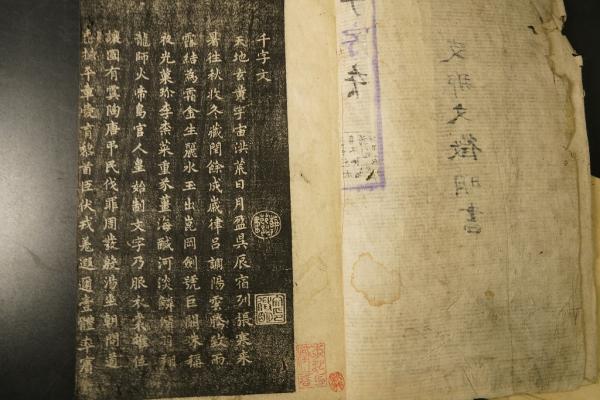 支那文徵明書
千字文
天地玄黃宇宙洪荒日月盈昃辰宿列張寒來
暑往秋收冬藏閏餘成歲律呂調陽雲騰致雨
露結為霜金生麗水玉出崑岡劍號巨闕珠稱
夜光菓珍李柰菜重芥薑海鹹河淡鱗潛羽翔
龍師火帝鳥官人皇始制文字乃服衣裳推位
讓國有虞陶唐弔民伐罪周發殷湯坐朝問道
垂拱平章愛育黎首臣伏戎羌遐邇壹體率賓